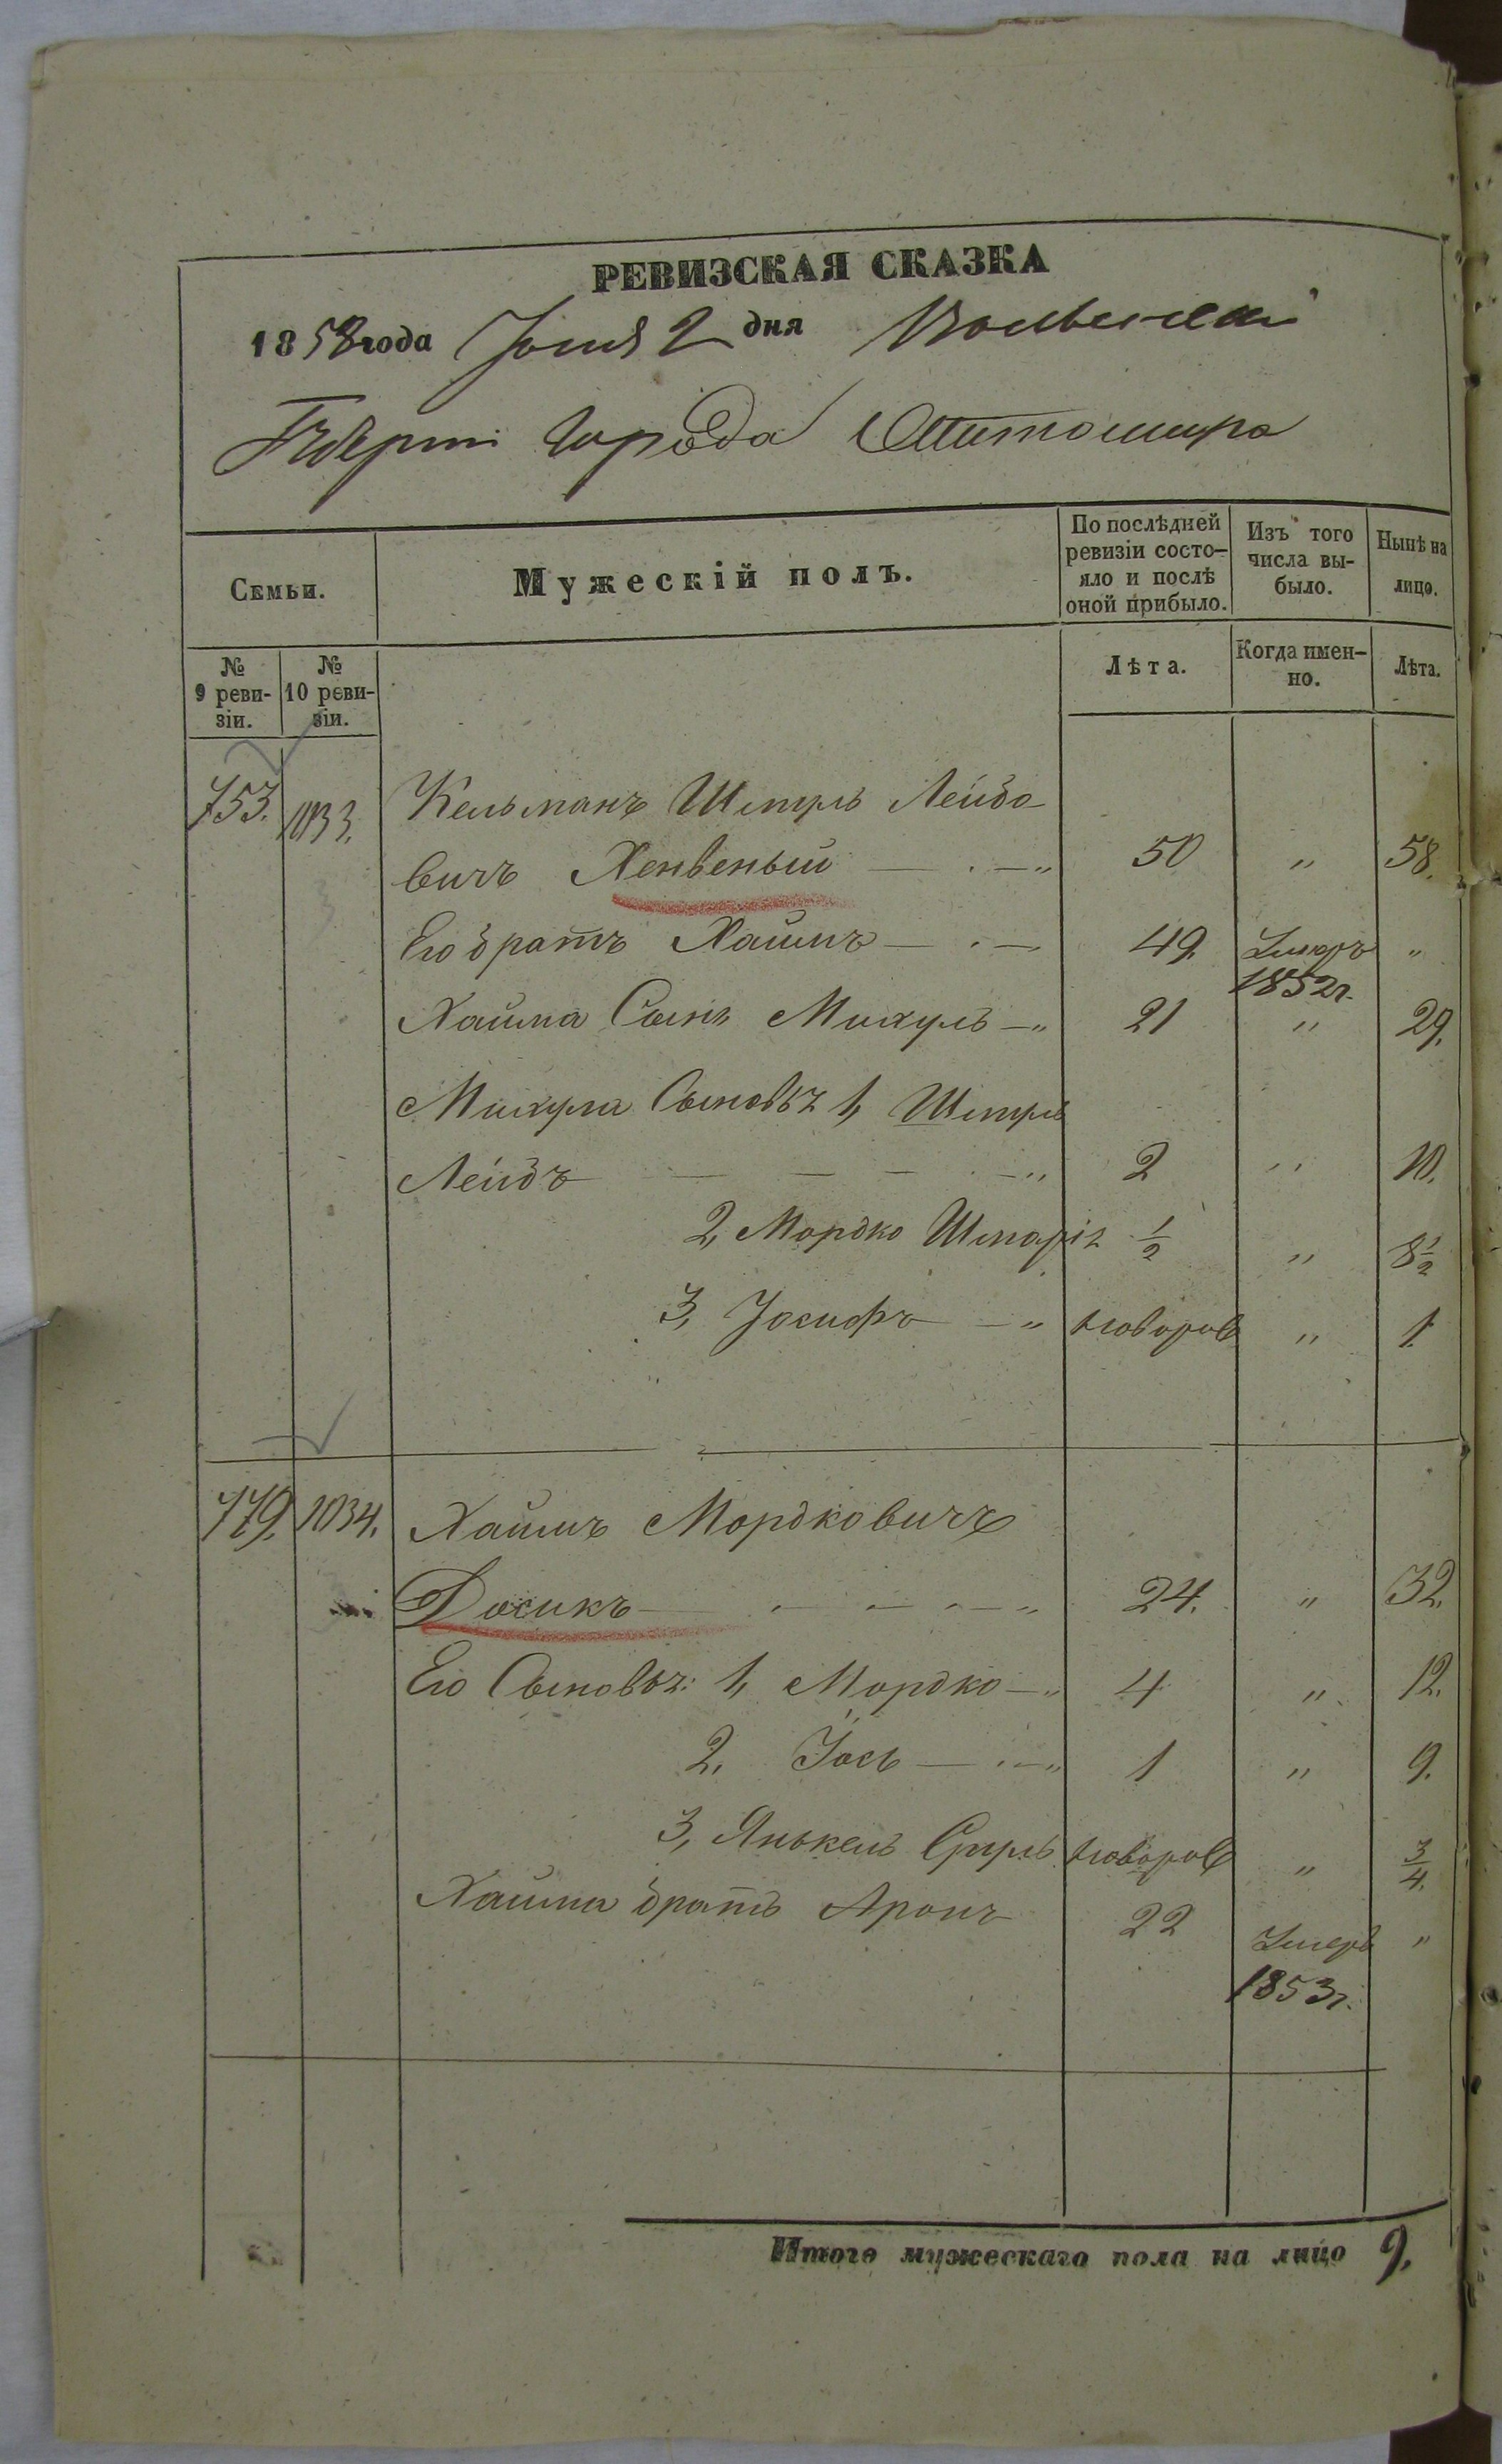 РЕВИЗСКАЯ СКАЗКА
1858 года Іюня 2 дня Волынской
Губерніи Города Житомира
Семьи.
Мужескій полъ.
По послѣдней ревизіи состо-
яло и послѣ
оной прибыло.
Изъ того
числа вы-
было.
Нынѣ на
лицо.
№
9 реви-
зіи.
№
10 реви-
зіи.
Лѣта.
Когда имен-
но.
Лѣта.
753. 1033. Кельманъ Шмуль Лейбо
вичъ 50 " 58.
Его братъ Хаимъ 49. Умеръ 1852г. "
Хаима Сынъ Михуль 21 " 29.
Михуля Сыновья 1, Шмуль
Лейбъ 2 " 10.
2, Мордко 1/2 " 8 1/2
3, Іосифъ новорож " 1.
779. 1034. Хаимъ Мордковичъ
Досикъ 24. " 32.
Его Сыновья: 1, Мордко 4 " 12.
2, Іось 1 " 9.
3, Янькель Сруль новорож " 3/4.
Хаима братъ Аронъ 22 Умеръ "
1853г.
Итого мужескаго пола на лицо 9.